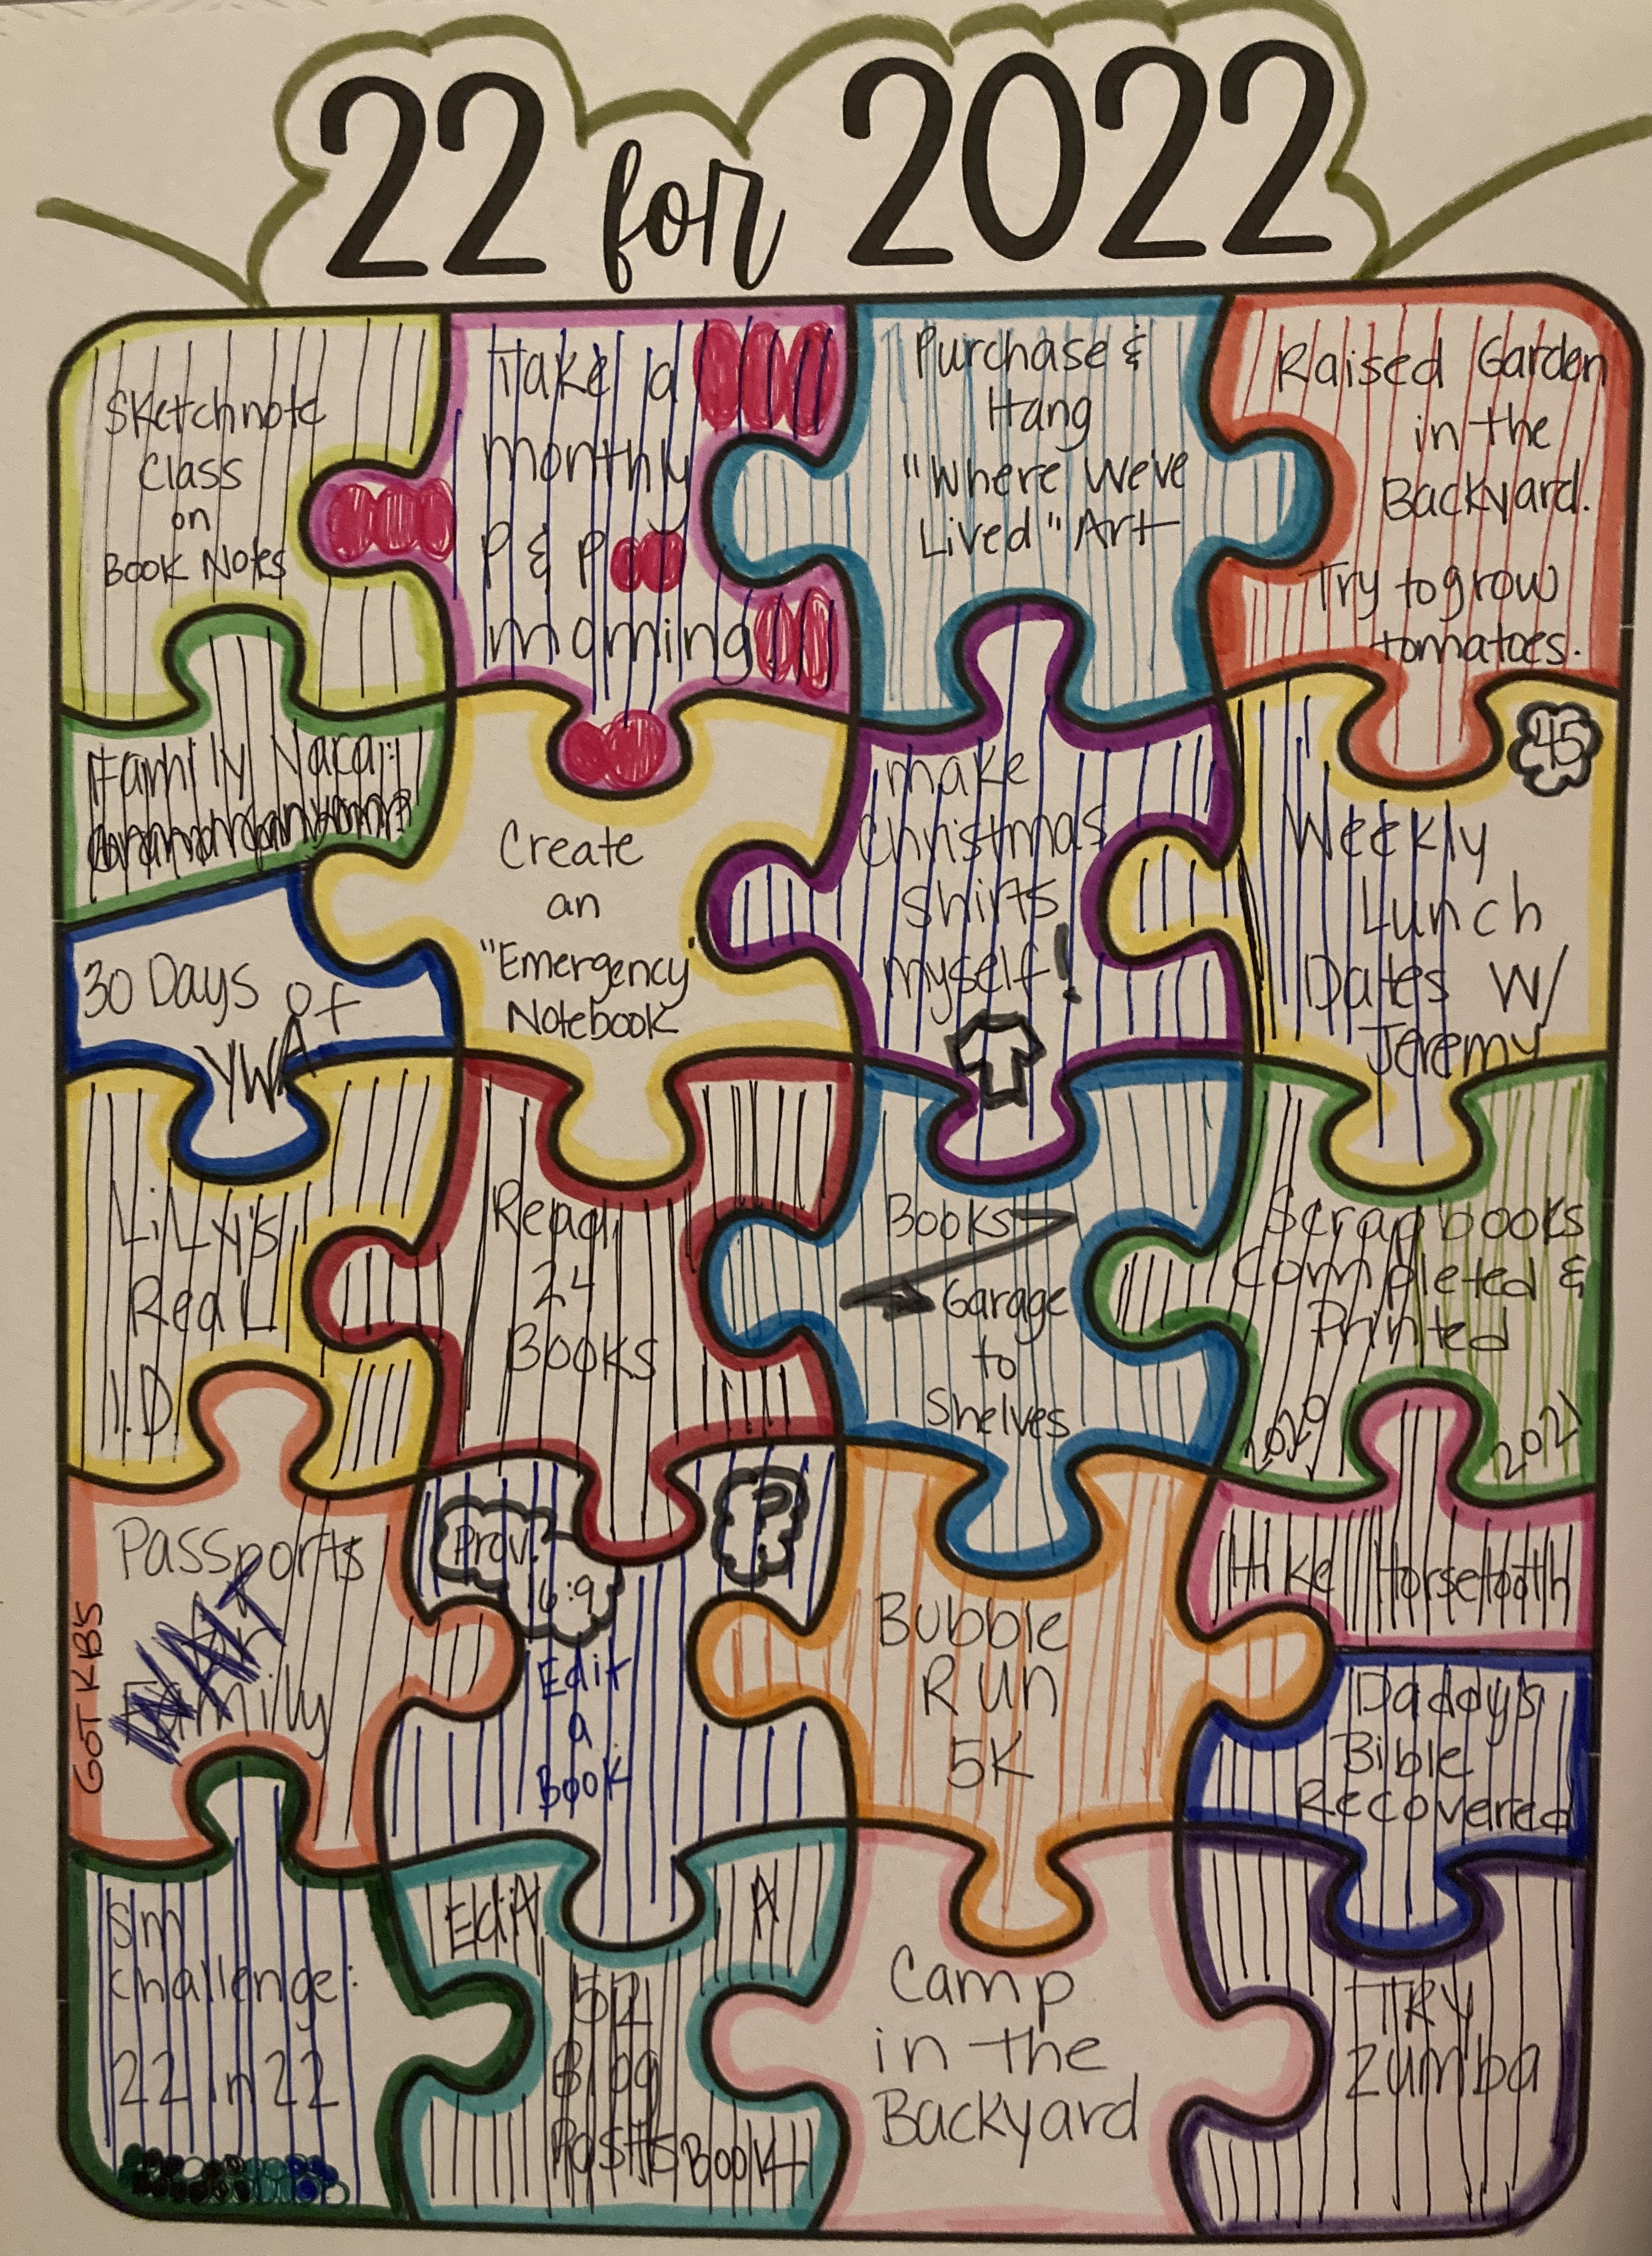 22 for 2022
Sketchnote
Class
on
Book Notes
Take a
monthly
P & P
morning
Purchase &
Hang
"Where We've
Lived" Art
Raised Garden
in the
Backyard.
Try to grow
tomatoes.
Family
30 Days of
YWA
Create
an
"Emergency
Notebook
make
Christmas
shirts
myself!
45
Weekly
Lunch
Dates W/
Jeremy
LiLLy's
ReaL
I.D.
Read
24
Books
Books
Garage
to
Shelves
Scrapbooks
Completed &
Printed
2020
2021
Passports
WAIT
Family
GOT KB'S
Prov.
16:9
?
Edit
a
Book
Bubble
Run
5K
Hike Horsetooth
Daddy's
Bible
Recovered
Sm
challenge:
22 in 22
Edit A
52
Blog
Posts Book
Camp
in the
Backyard
TRY
Zumba